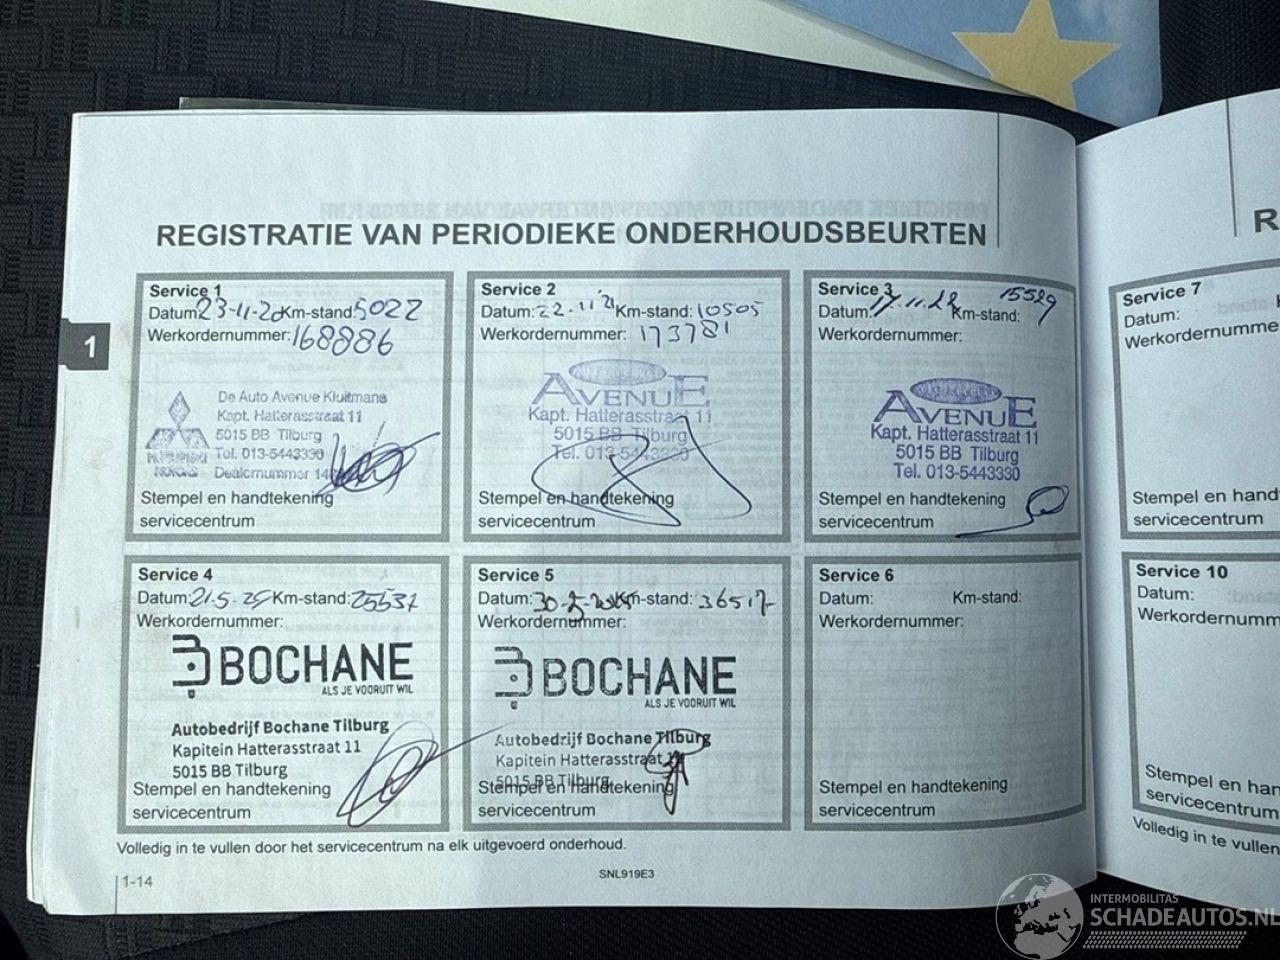 REGISTRATIE VAN PERIODIEKE ONDERHOUDSBEURTEN
1
Service 1
Datum: 23-11-20 Km-stand: 5022
Werkordernummer: 168886
De Auto Avenue Kluitmans
Kapt. Hatterasstraat 11
5015 BB Tilburg
Tel. 013-5443330
Dealernummer
Stempel en handtekening
servicecentrum
Service 2
Datum: 22-11'21 Km-stand: 10505
Werkordernummer: 173781
AVENUE
Kapt. Hatterasstraat 11
5015 BB Tilburg
Tel. 013-5443330
Stempel en handtekening
servicecentrum
Service 3
Datum: 17.11.22 Km-stand: 15529
Werkordernummer:
AVENUE
Kapt. Hatterasstraat 11
5015 BB Tilburg
Tel. 013-5443330
Stempel en handtekening
servicecentrum
Service 4
Datum: 21-5-25 Km-stand: 25537
Werkordernummer:
BOCHANE
ALS JE VOORUIT WIL
Autobedrijf Bochane Tilburg
Kapitein Hatterasstraat 11
5015 BB Tilburg
Stempel en handtekening
servicecentrum
Service 5
Datum: 30-5-2025 Km-stand: 36517
Werkordernummer:
BOCHANE
ALS JE VOORUIT WIL
Autobedrijf Bochane Tilburg
Kapitein Hatterasstraat 11
5015 BB Tilburg
Stempel en handtekening
servicecentrum
Service 6
Datum: Km-stand:
Werkordernummer:
Stempel en handtekening
servicecentrum
Volledig in te vullen door het servicecentrum na elk uitgevoerd onderhoud.
1-14
SNL919E3
R
Service 7
Datum:
Werkordernumme
Stempel en hand
servicecentrum
Service 10
Datum:
Werkordernumm
Stempel en han
servicecentrum
Volledig in te vullen
INTERMOBILITAS
SCHADEAUTOS.NL